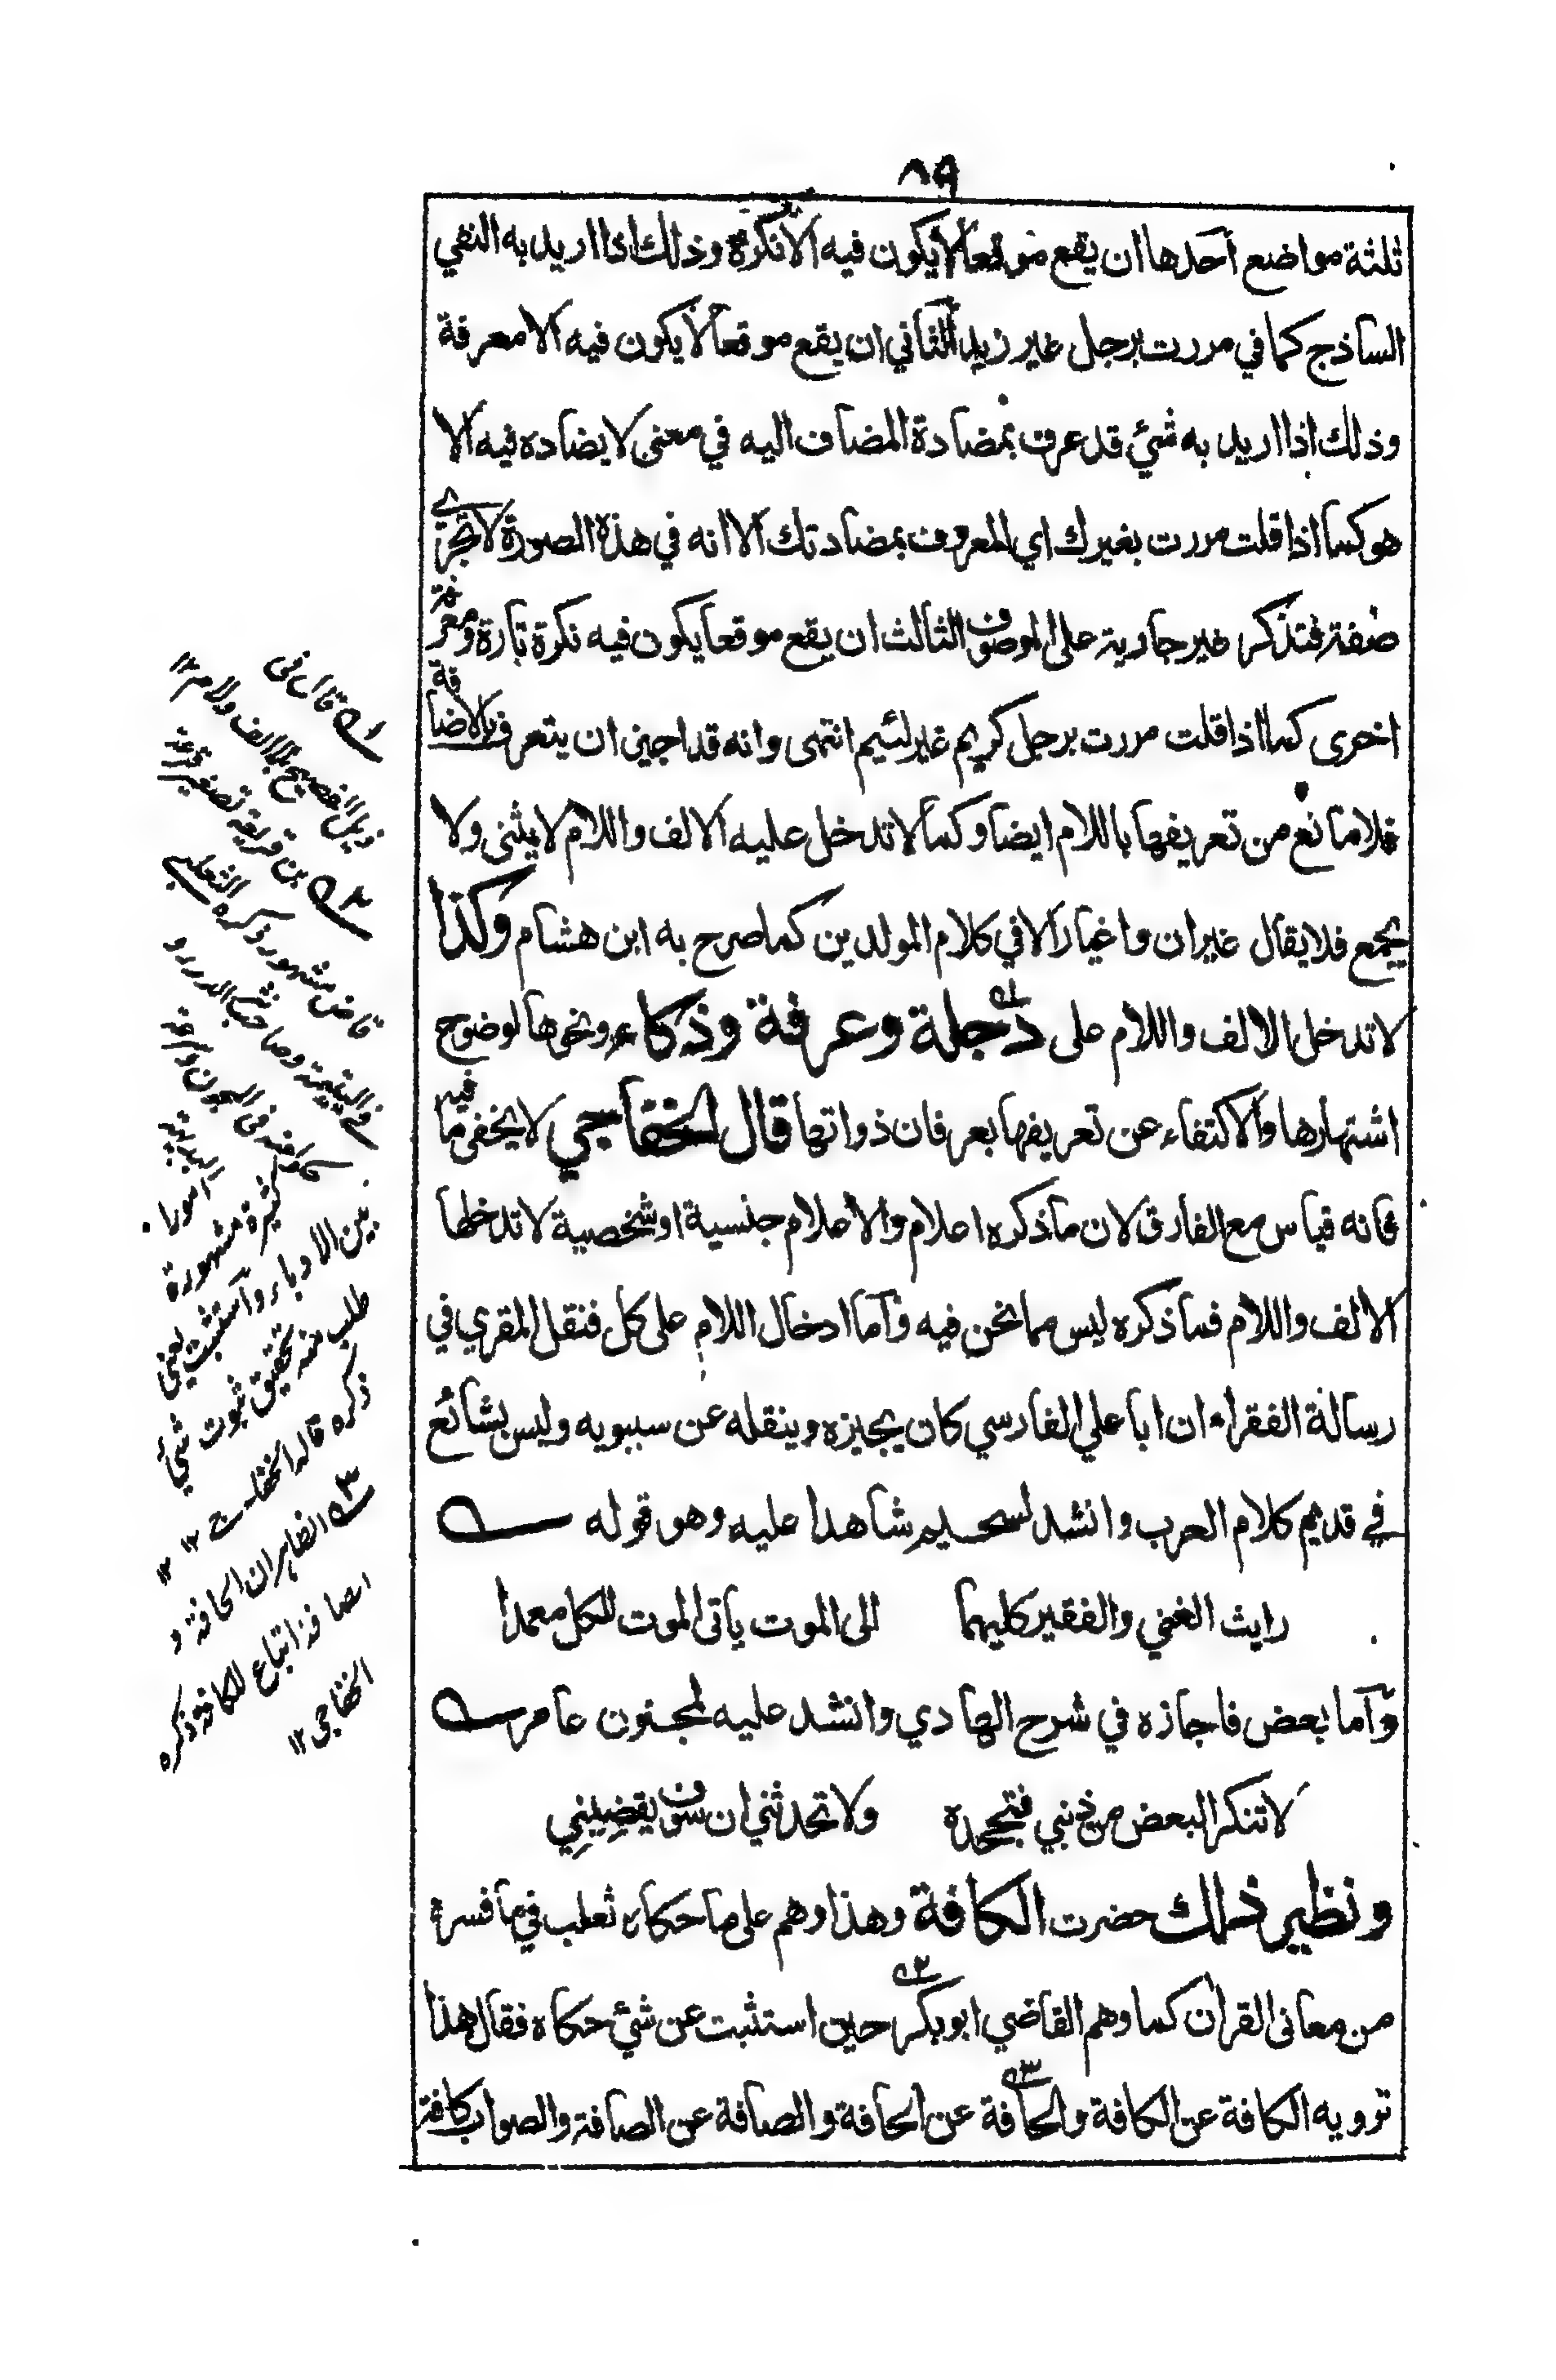 ٨٩
ثلثة مواضع أحدها ان يقع موقعا لا يكون فيه الا نكرة وذلك اذا اريد به النفي
الساذج كما في مررت برجل غير زيد الثاني ان يقع موقعا لا يكون فيه الا معرفة
وذلك اذا اريد به شئ قد عرف بمضادة المضاف اليه في معنى لا يضاده فيه الا
هو كما اذا قلت مررت بغيرك اي المعروف بمضادتك الا انه في هذة الصورة لا تجرى
صفة فتذكر غير جارية على الموصوف الثالث ان يقع موقعا يكون فيه نكرة تارة ومعرفة
اخرى كما اذا قلت مررت برجل كريم غير لئيم انتهى وانه قد اجيز ان يتعرف بالاضافة
فلا مانع من تعريفها باللام ايضا وكما لا تدخل عليه الالف واللام لا يثنى ولا
يجمع فلا يقال غيران واغيار الا في كلام المولدين كما صرح به ابن هشام وكذا
لا تدخل الالف واللام على دجلة وعرفة وذكاء ونحوها لوضوح
اشتهارها والاكتفاء عن تعريفها بعرفان ذواتها قال الخفاجي لا يخفى ما فيه
فانه قياس مع الفارق لان ما ذكره اعلام والاعلام جنسية او شخصية لا تدخلها
الالف واللام فما ذكره ليس مما نحن فيه وآما ادخال اللام على كل فنقل المقري في
رسالة الفقراء ان ابا علي الفارسي كان يجيزه وينقله عن سيبويه وليس بشائع
في قديم كلام العرب وانشد لسحيم شاهدا عليه وهو قوله
رايت الغني والفقير كليهما الى الموت ياتى الموت للكل معمدا
وآما بعض فاجازه في شرح الهادي وانشد عليه لمجنون عامر
لا تنكر البعض من ذنبي فتجحده ولا تحدثني ان سوف يقضيني
ونظير ذلك حضرت الكافة وهذا وهم على ما حكاه ثعلب في ما فسره
من معانى القران كما وهم القاضي ابو بكر حين استثبت عن شئ حكاه فقال هذا
ترويه الكافة عن الكافة والحافة عن الحافة والصافة عن الصافة والصواب كافة
١ قال فى
ذيل الفصيح بالالف ولام ١٢
٢ بن قريعة تصغير قرعة
قاض مشهور ذكره الثعلبى
فى اليتيمة وصاحب نثر الدرر و
البديهة
امورا
كثيرة مشهورة
بين الادباء وآستثبت يعنى
طلب منه تحقيق ثبوت شئ
ذكره قاله الخفاجى ١٢
٣ الظاهر ان الحافة و
الصافة اتباع للكافة ذكره
الخفاجى ١٢